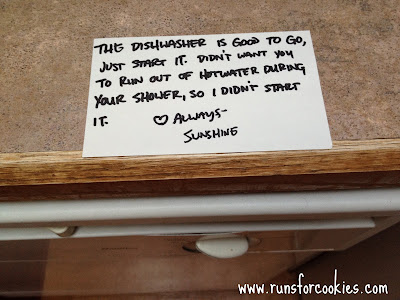 THE DISHWASHER IS GOOD TO GO,
JUST START IT. DIDN'T WANT YOU
TO RUN OUT OF HOTWATER DURING
YOUR SHOWER, SO I DIDN'T START
IT. ♡ ALWAYS-
SUNSHINE
www.runsforcookies.com